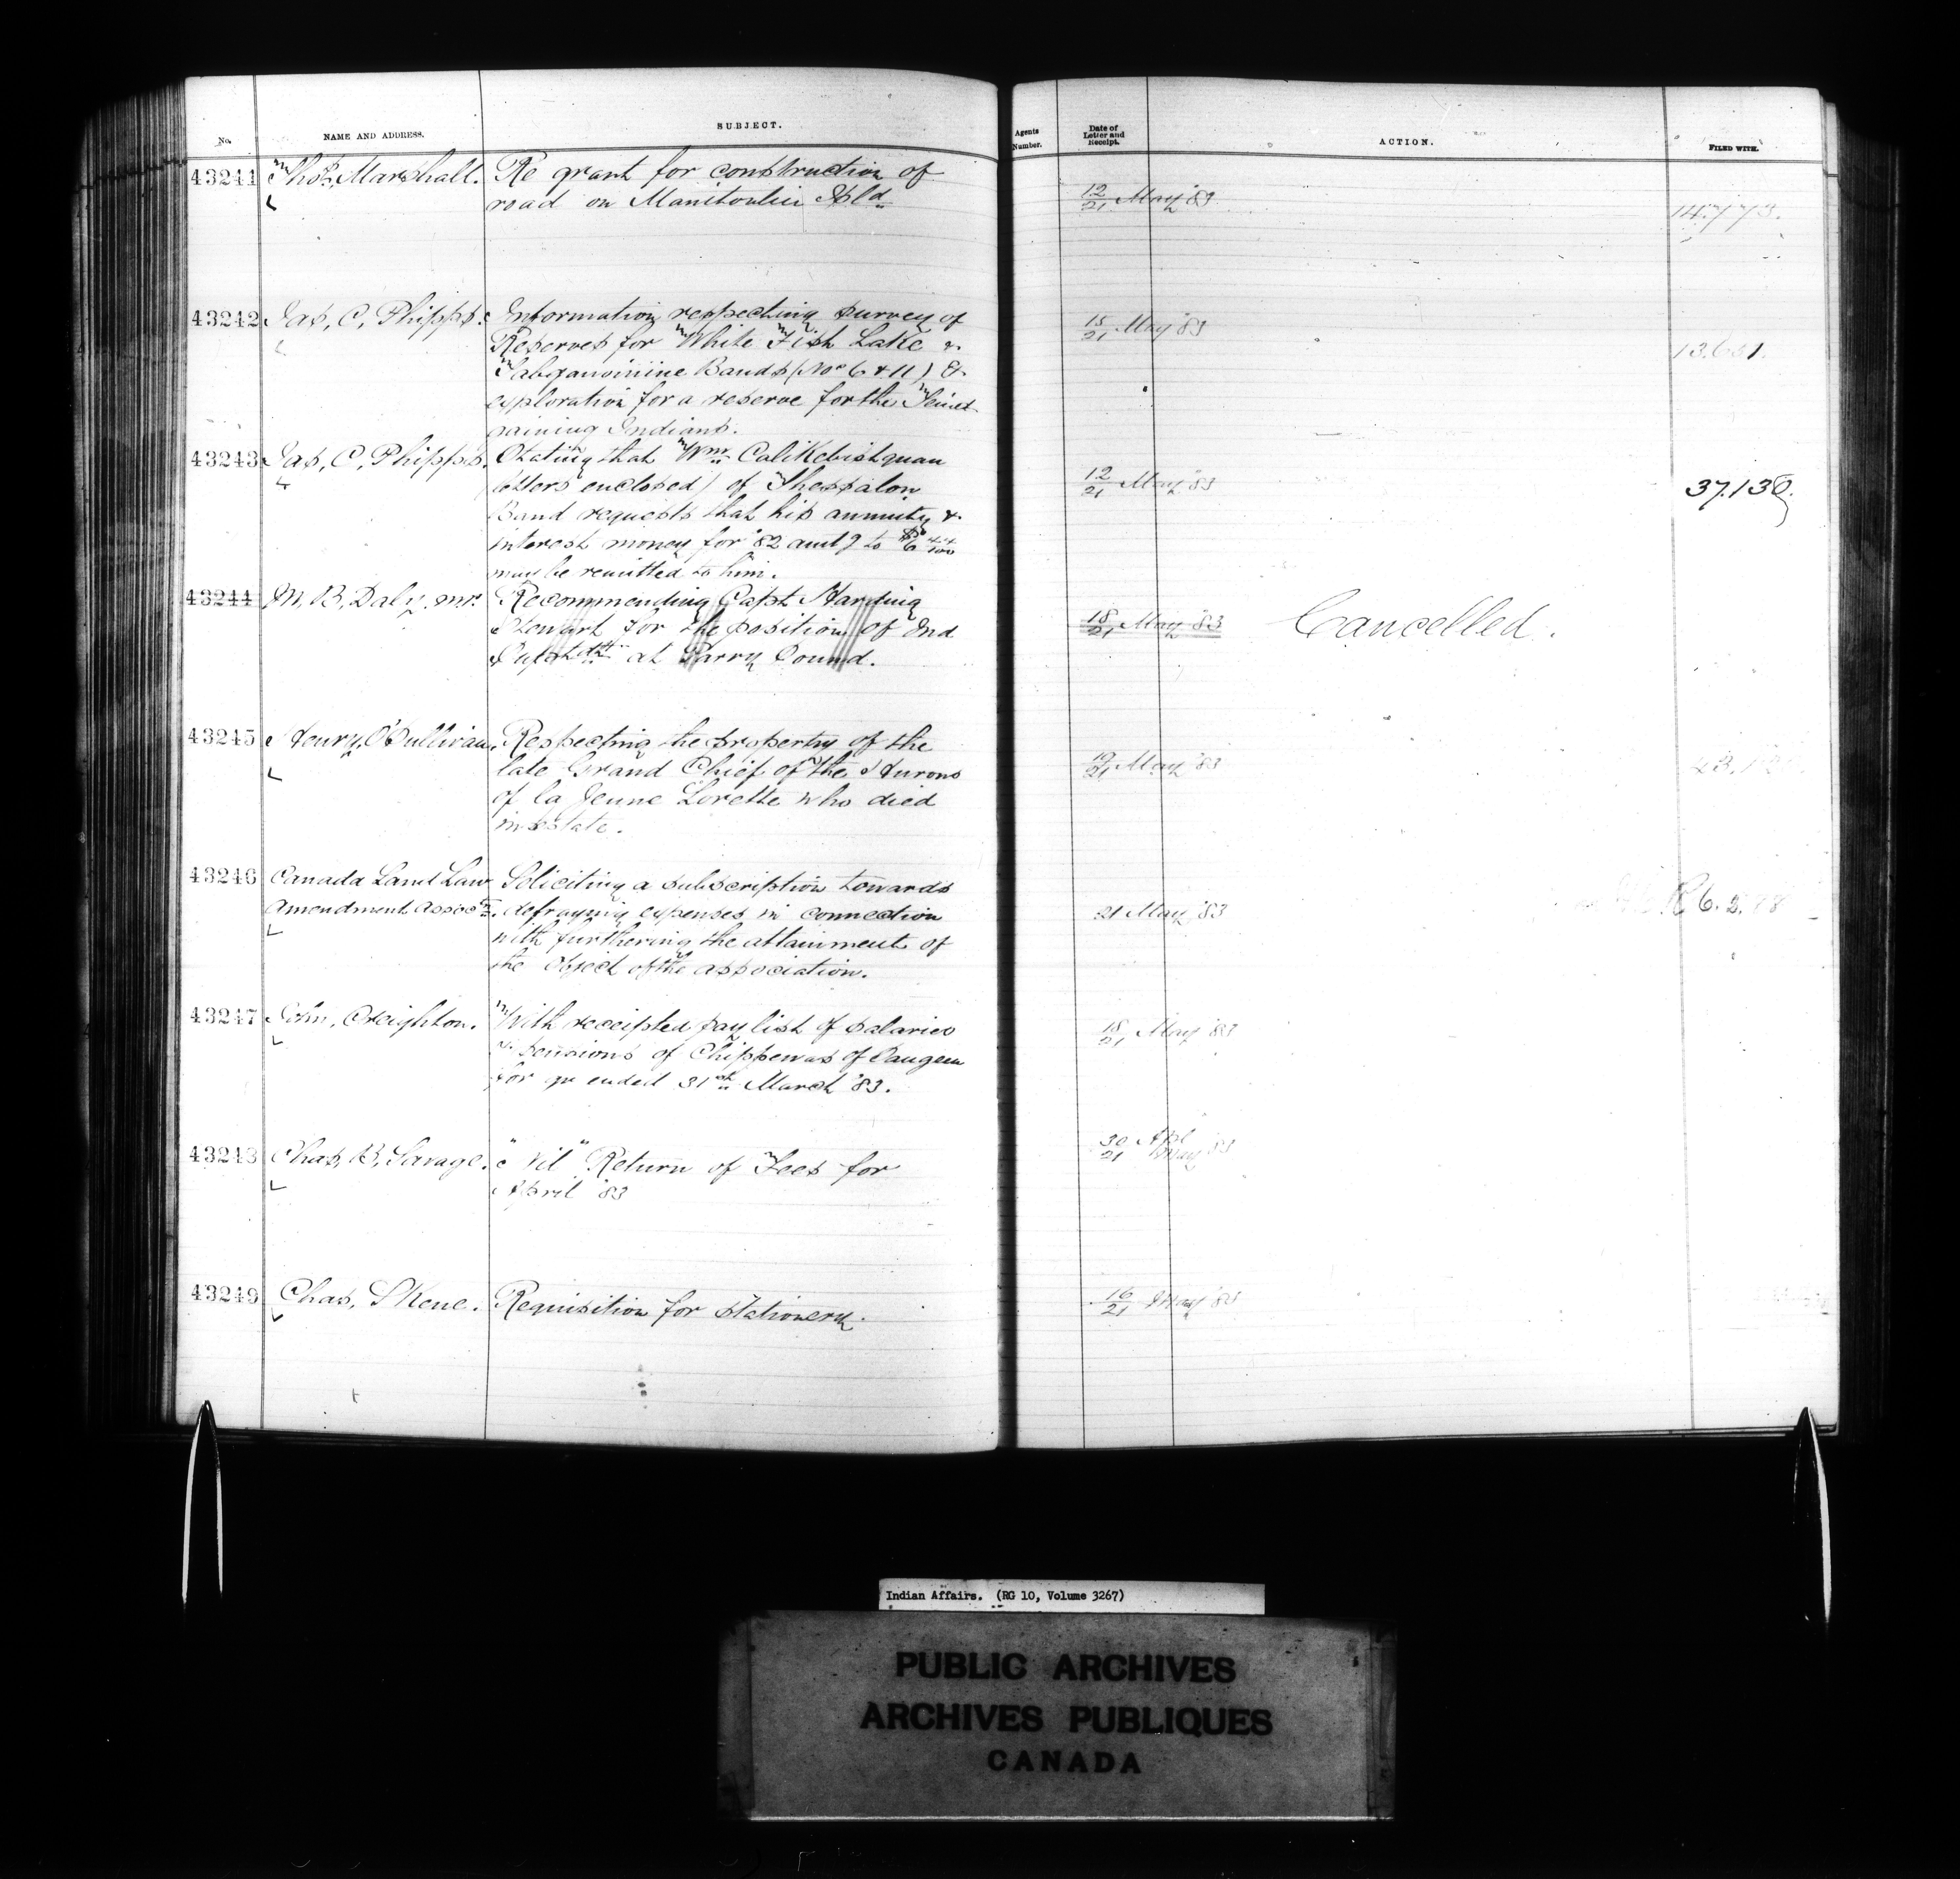 No. NAME AND ADDRESS. SUBJECT. Agents Number. Date of Letter and Receipt. ACTION. FILED WITH.
43241 Thos. Marshall. Re grant for construction of
road on Manitoulin Isld 12/21 May '83 14.773.
43242 Jas, C, Phipps. Information respecting survey of 15/21 May '83
Reserves for White Fish Lake &
Bands (Nos 6 & 11) &
exploration for a reserve for the
Indians.
43243 Jas, C, Phipps. Stating that Wm
(letters enclosed) of Thessalon 12/21 May '83 37.130.
Band requests that his annuity &
interest money for '82 amtg to $6 44/100
may be remitted to him.
43244 M, B, Daly, Recommending Capt Harding
Stewart for the position of Ind 18/21 May '83 Cancelled.
Suptdt at Parry Sound.
43245 Henry, O'Sullivan. Respecting the property of the
late Grand Chief of the Hurons 19/21 May '83
of la Jeune Lorette who died
intestate.
43246 Canada Land Law Soliciting a subscription towards
Amendment Associn. defraying expenses in connection 21 May '83
with furthering the attainment of
the object of the association.
43247 John, Creighton. With receipted pay list of salaries 18/21 May '83
& pensions of Chippewas of Saugeen
for qr ended 31st March '83.
43248 Chas, B, Savage. "Nil" Return of Fees for 30/21 Apl May '83
April '83
43249 Chas, Skene. Requisition for stationery. 16/21 May '83
Indian Affairs. (RG 10, Volume 3267)
PUBLIC ARCHIVES
ARCHIVES PUBLIQUES
CANADA